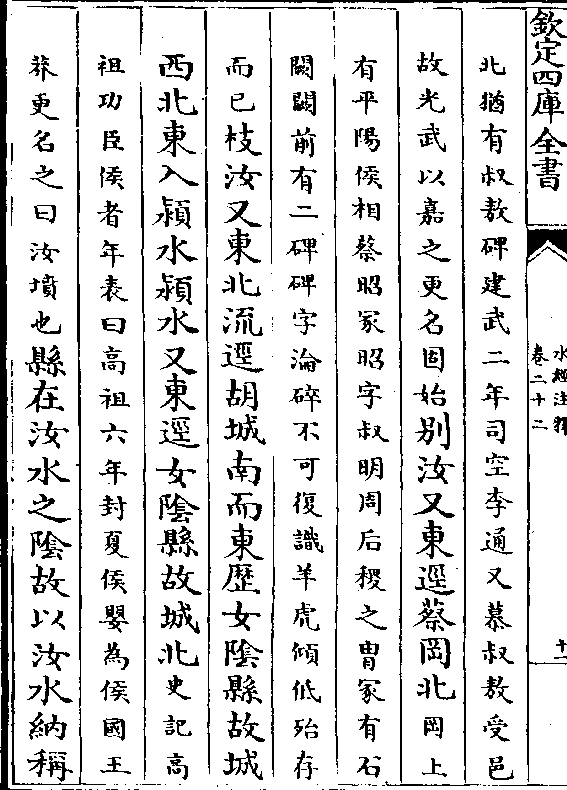 欽定四庫全書
水經注釋
卷二十二
十二
北猶有叔敖碑建武二年司空李通又慕叔敖受邑
故光武以嘉之更名固始別汝又東逕蔡岡北岡上
有平陽侯相蔡昭冢昭字叔明周后稷之胄冢有石
闕闕前有二碑碑字淪碎不可復識羊虎傾低殆存
而已枝汝又東北流逕胡城南而東歷女陰縣故城
西北東入潁水潁水又東逕女陰縣故城北史記高
祖功臣侯者年表曰高祖六年封夏侯嬰為侯國王
莽更名之曰汝墳也縣在汝水之陰故以汝水納稱